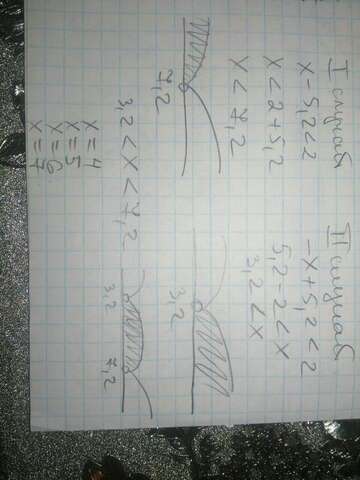 I случай II случай
x - 5,2 < 2 -x + 5,2 < 2
x < 2 + 5,2 5,2 - 2 < x
x < 7,2 3,2 < x
7,2 3,2
3,2 < x < 7,2 3,2 7,2
x = 4
x = 5
x = 6
x = 7